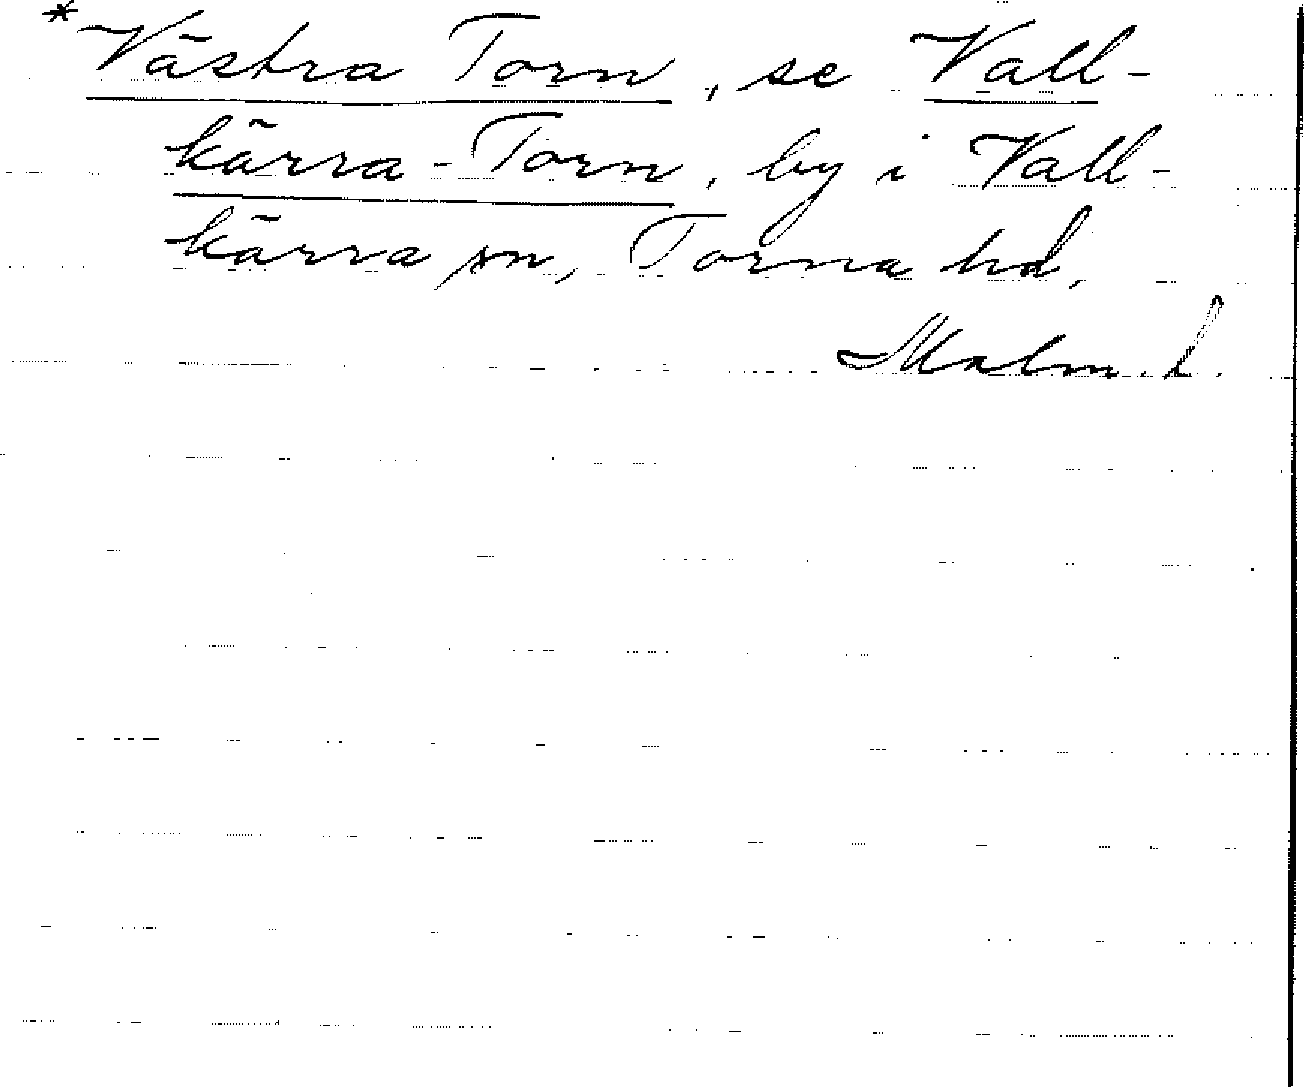 *Västra Torn, se Vall-
kärra-Torn, by i Vall-
kärra sn, Torna hd,
Malm. l.